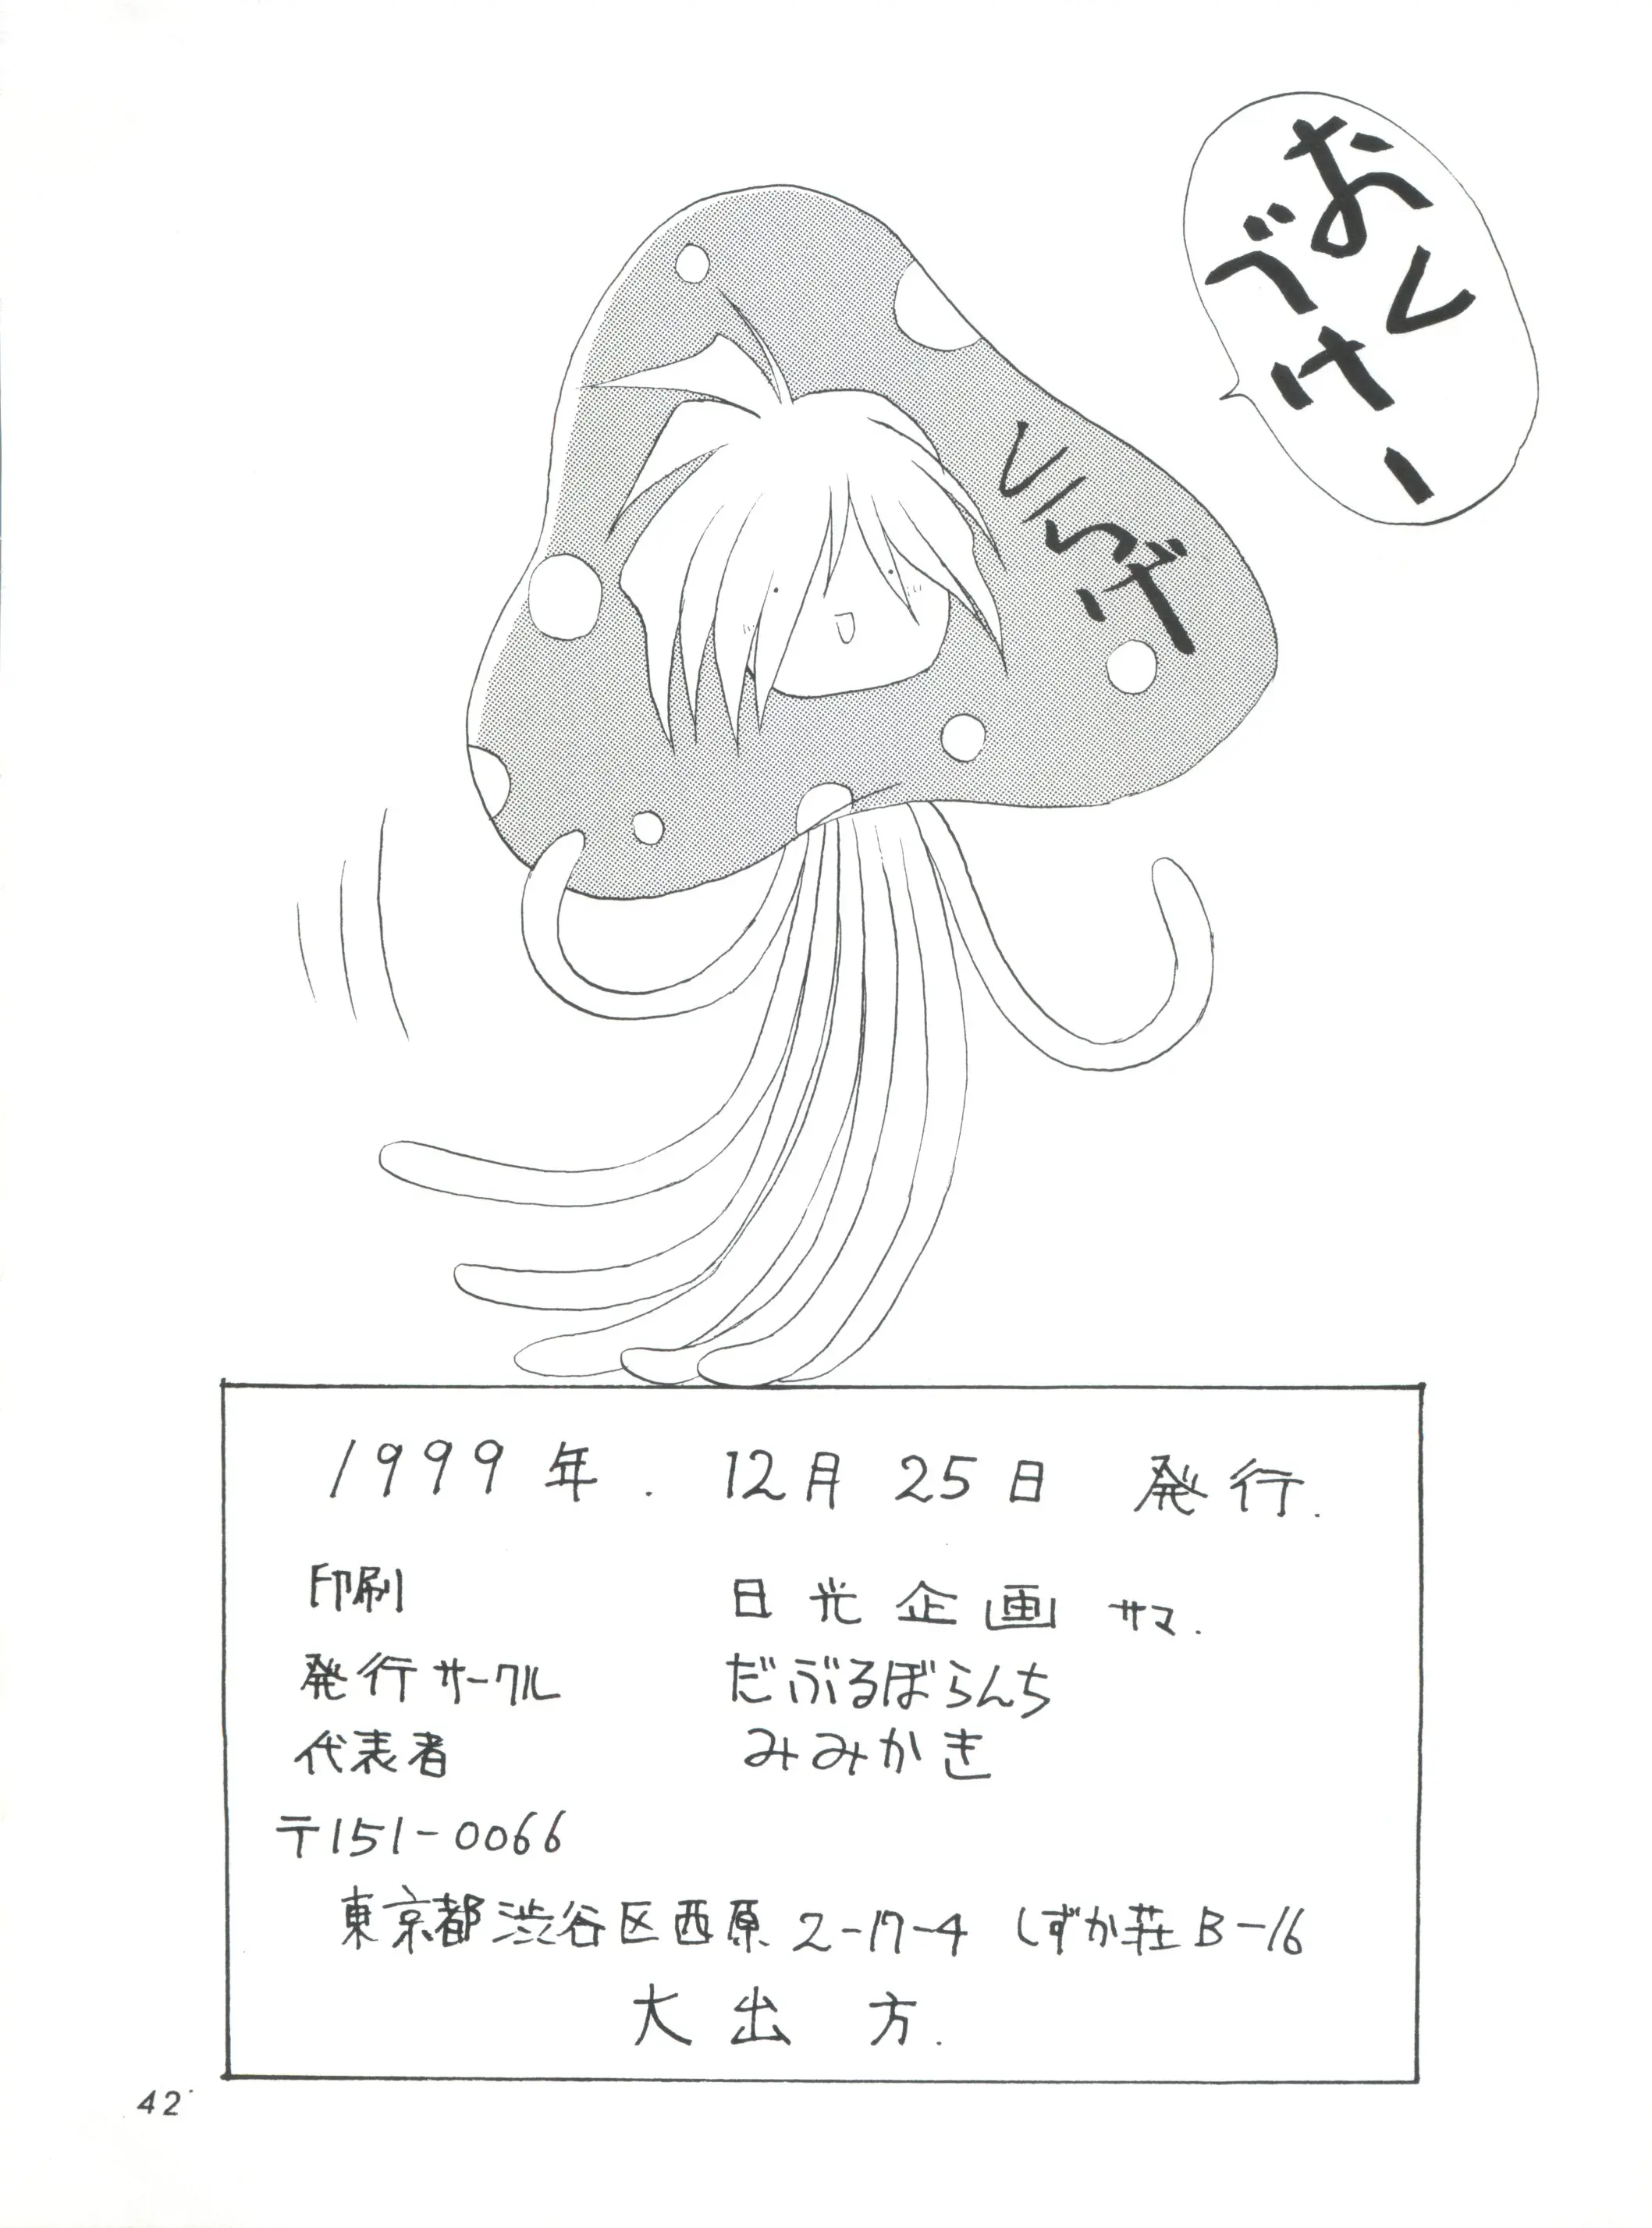 おく
べけー
1999年. 12月25日 発行.
印刷 日光企画 サマ.
発行サークル だぶるぼらんち
代表者 みみかき
〒151-0066
東京都渋谷区西原2-17-4 しずか荘B-16
大出 方.
42